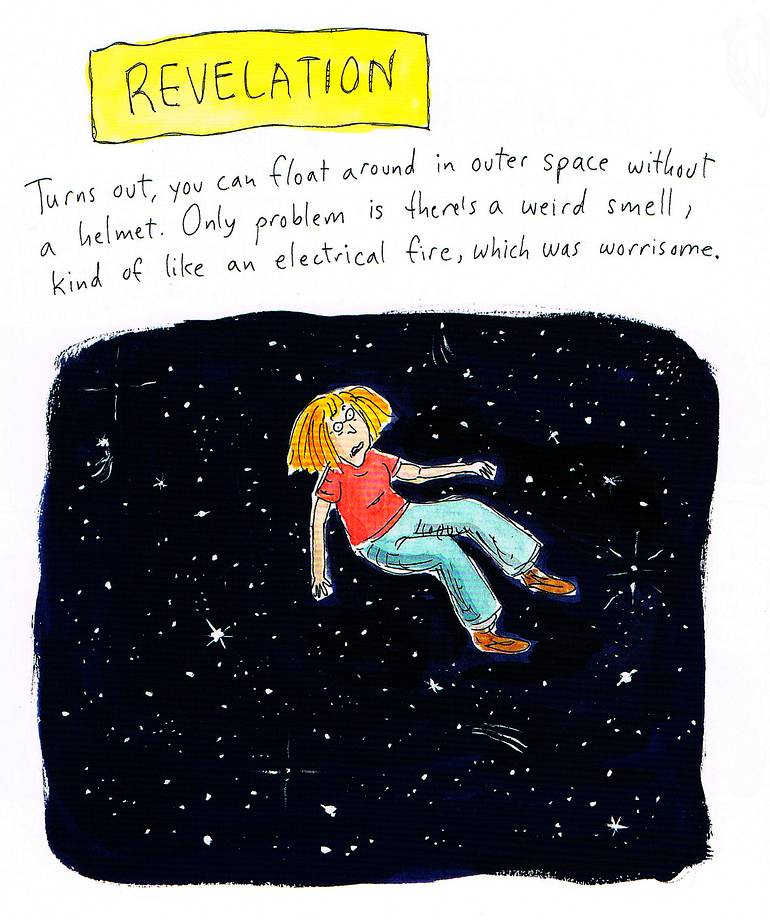 REVELATION
Turns out, you can float around in outer space without
a helmet. Only problem is there's a weird smell,
kind of like an electrical fire, which was worrisome.